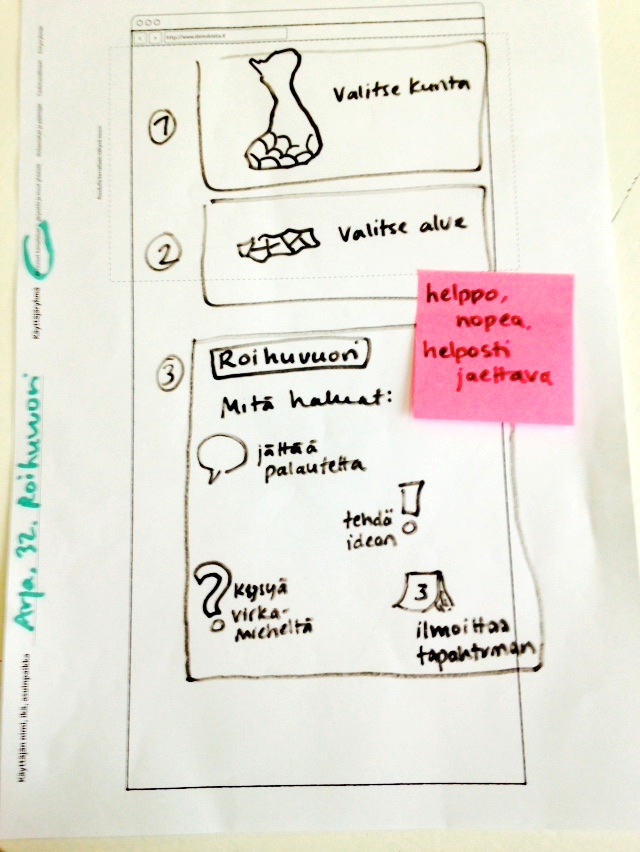 ①
Valitse kunta
②
Valitse alue
helppo,
nopea,
helposti
jaettava
③
Roihuvuori
Mitä haluat:
jättää
palautetta
tehdä
idean
?
kysyä
virka-
mieheltä
3
ilmoittaa
tapahtuman
Käyttäjän nimi, ikä, asuinpaikka
Arja. 32. Roihuvuori
Käyttäjäryhmä